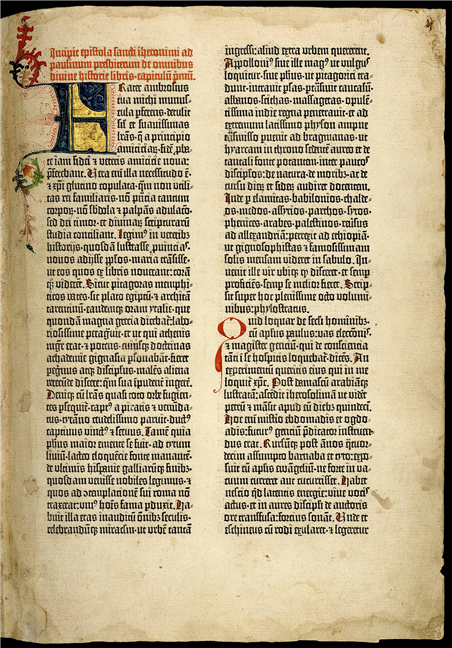 Incipit epistola sancti iheronimi ad
paulinum presbiterum de omnibus
divine historie libris. capitulū pmū.
Frater ambrosius
tua michi munus-
cula pferens. detulit
sił et suavissimas
lrās. q̄ a principio
amiciciaȝ. fidē pba-
te iam fidei et veteris amicicie nova:
pferebant. Vera em̄ illa necessitudo ē.
et xp̄i glutino copulata. qm̄ non vtili-
tas rei familiaris. nō pn̄tia tantum
corpoȝ. nō sbdola et palpās adulacō.
sed dei timor. et divinaȝ scripturarū
studia conciliant. Legim9 in veteribȝ
historijs. quosdā lustrasse puincias.
novos adijsse pplos. maria trāsisse.
ut eos quos ex libris noverant: corā
qȝ viderēt. Sicut pitagoras memphi-
ticos vates. sic plato egiptū. et architā
tarentinū. eandemqȝ oram ytalie. que
quondā magna grecia dicebat~: labo-
riosissime peragravit. et ut qui athenis
mgr̄ erat. et potens. cuiusqȝ doctrinas
achademie gignasia psonabāt. fieret
peregrinus atqȝ discipulus. malēs aliena
verecunde discere: qm̄ sua īpudent~ ingerere.
Deniqȝ cū lrās quasi toto orbe fugien-
tes psequit~. capt9 a piratis et venūda-
tus. tyranno crudelissimo paruit. duct9
captivus vinct9 et servus. Tamē quia
phus maior emente se fuit. ad tytum
liviū. lacteo eloquētie fonte manantē.
de ultimis hispanie galliarūqȝ finibȝ.
quosdam venisse nobiles legimus. et
quos ad ꝯtemplacionē sui roma nō
traxerat: uni9 hoīs fama pduxit. Ha-
buit illa etas inauditū om̄ibȝ seculis.
celebrandūqȝ miraculū. ut urbē tantā
ingressi: aliud extra urbem quererent.
Apolloni9 sive ille mag9 ut vulgus
loquitur. sive phus ut pitagorici tra-
dunt. intravit psas. ptrāsivit caucasū.
albanos. scithas. massagetas. opulē-
tissima indie regna penetravit. et ad
extremum latissimo physon amne
trāsmisso puenit ad bragmanas. ut
hyarcam in throno sedentē aureo. et de
tantali fonte potantem. inter paucos
discipulos. de natura. de moribȝ. ac de
cursu dieȝ et sideȝ audiret docentem.
Inde p elamitas. babilonios. chalde-
os. medos. assyrios. parthos. syros.
phenices. arabes. palestinos. reversus
ad allexandriā. perrexit ad ethiopiā.
ut gignosophistas et famosissimam
solis mensam videret in sabulo. In-
venit ille vir ubiqȝ qȝ disceret. et semp
proficiēs. semp se melior fieret. Scrip-
sit super hoc plenissime octo volumi-
nibus: phylostratus.
Quid loquar de seculi hominibȝ.
cū aplūs paulus: vas electōnis.
et magister gencium. qui de consciencia
tāti ī se hospitis loquebat~ dicēs. An
experimentum queritis eius qui in me
loquit~ xp̄c. Post damascū arabiāqȝ
lustratā: ascēdit iherosolimā ut videret
petrū et māsit apud eū diebȝ quindecī.
Hoc em̄ misterio ebdomadis et ogdo-
adis: futur9 genciū pdicator instruen-
dus erat. Rursūqȝ post ānos q̄tuor-
decim assumpto barnaba et tyto: expo-
suit cū aplis evāgeliū. ne forte in va-
cuum curreret aut cucurrisset. Habet
nescio qd latentis energie: vive vocis
actus. et in aures discipli de auctoris
ore transfusa: forcius sonat. Unde et
eschineus cū rodi exularet. et legeretur